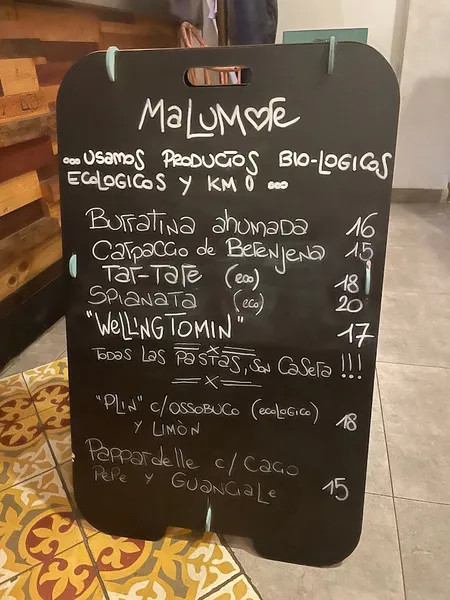 MaLUM♥Re
...USAMOS PRODUCTOS BIO-LOGICOS
ECOLOGICOS Y KM 0 ...
BURRATINA ahumada 16
CARPACCIO de BERENJENA 15
TAR-TARE (eco) 18
SPIANATA (eco) 20
"WELLINGTOMIN" 17
TODAS LAS PASTAS, SON CASERA !!!
"PLIN" c/OSSOBUCO (ecologico) 18
Y LIMÓN
PAPPARDELLE c/ CACIO
PEPE Y GUANCIALE 15